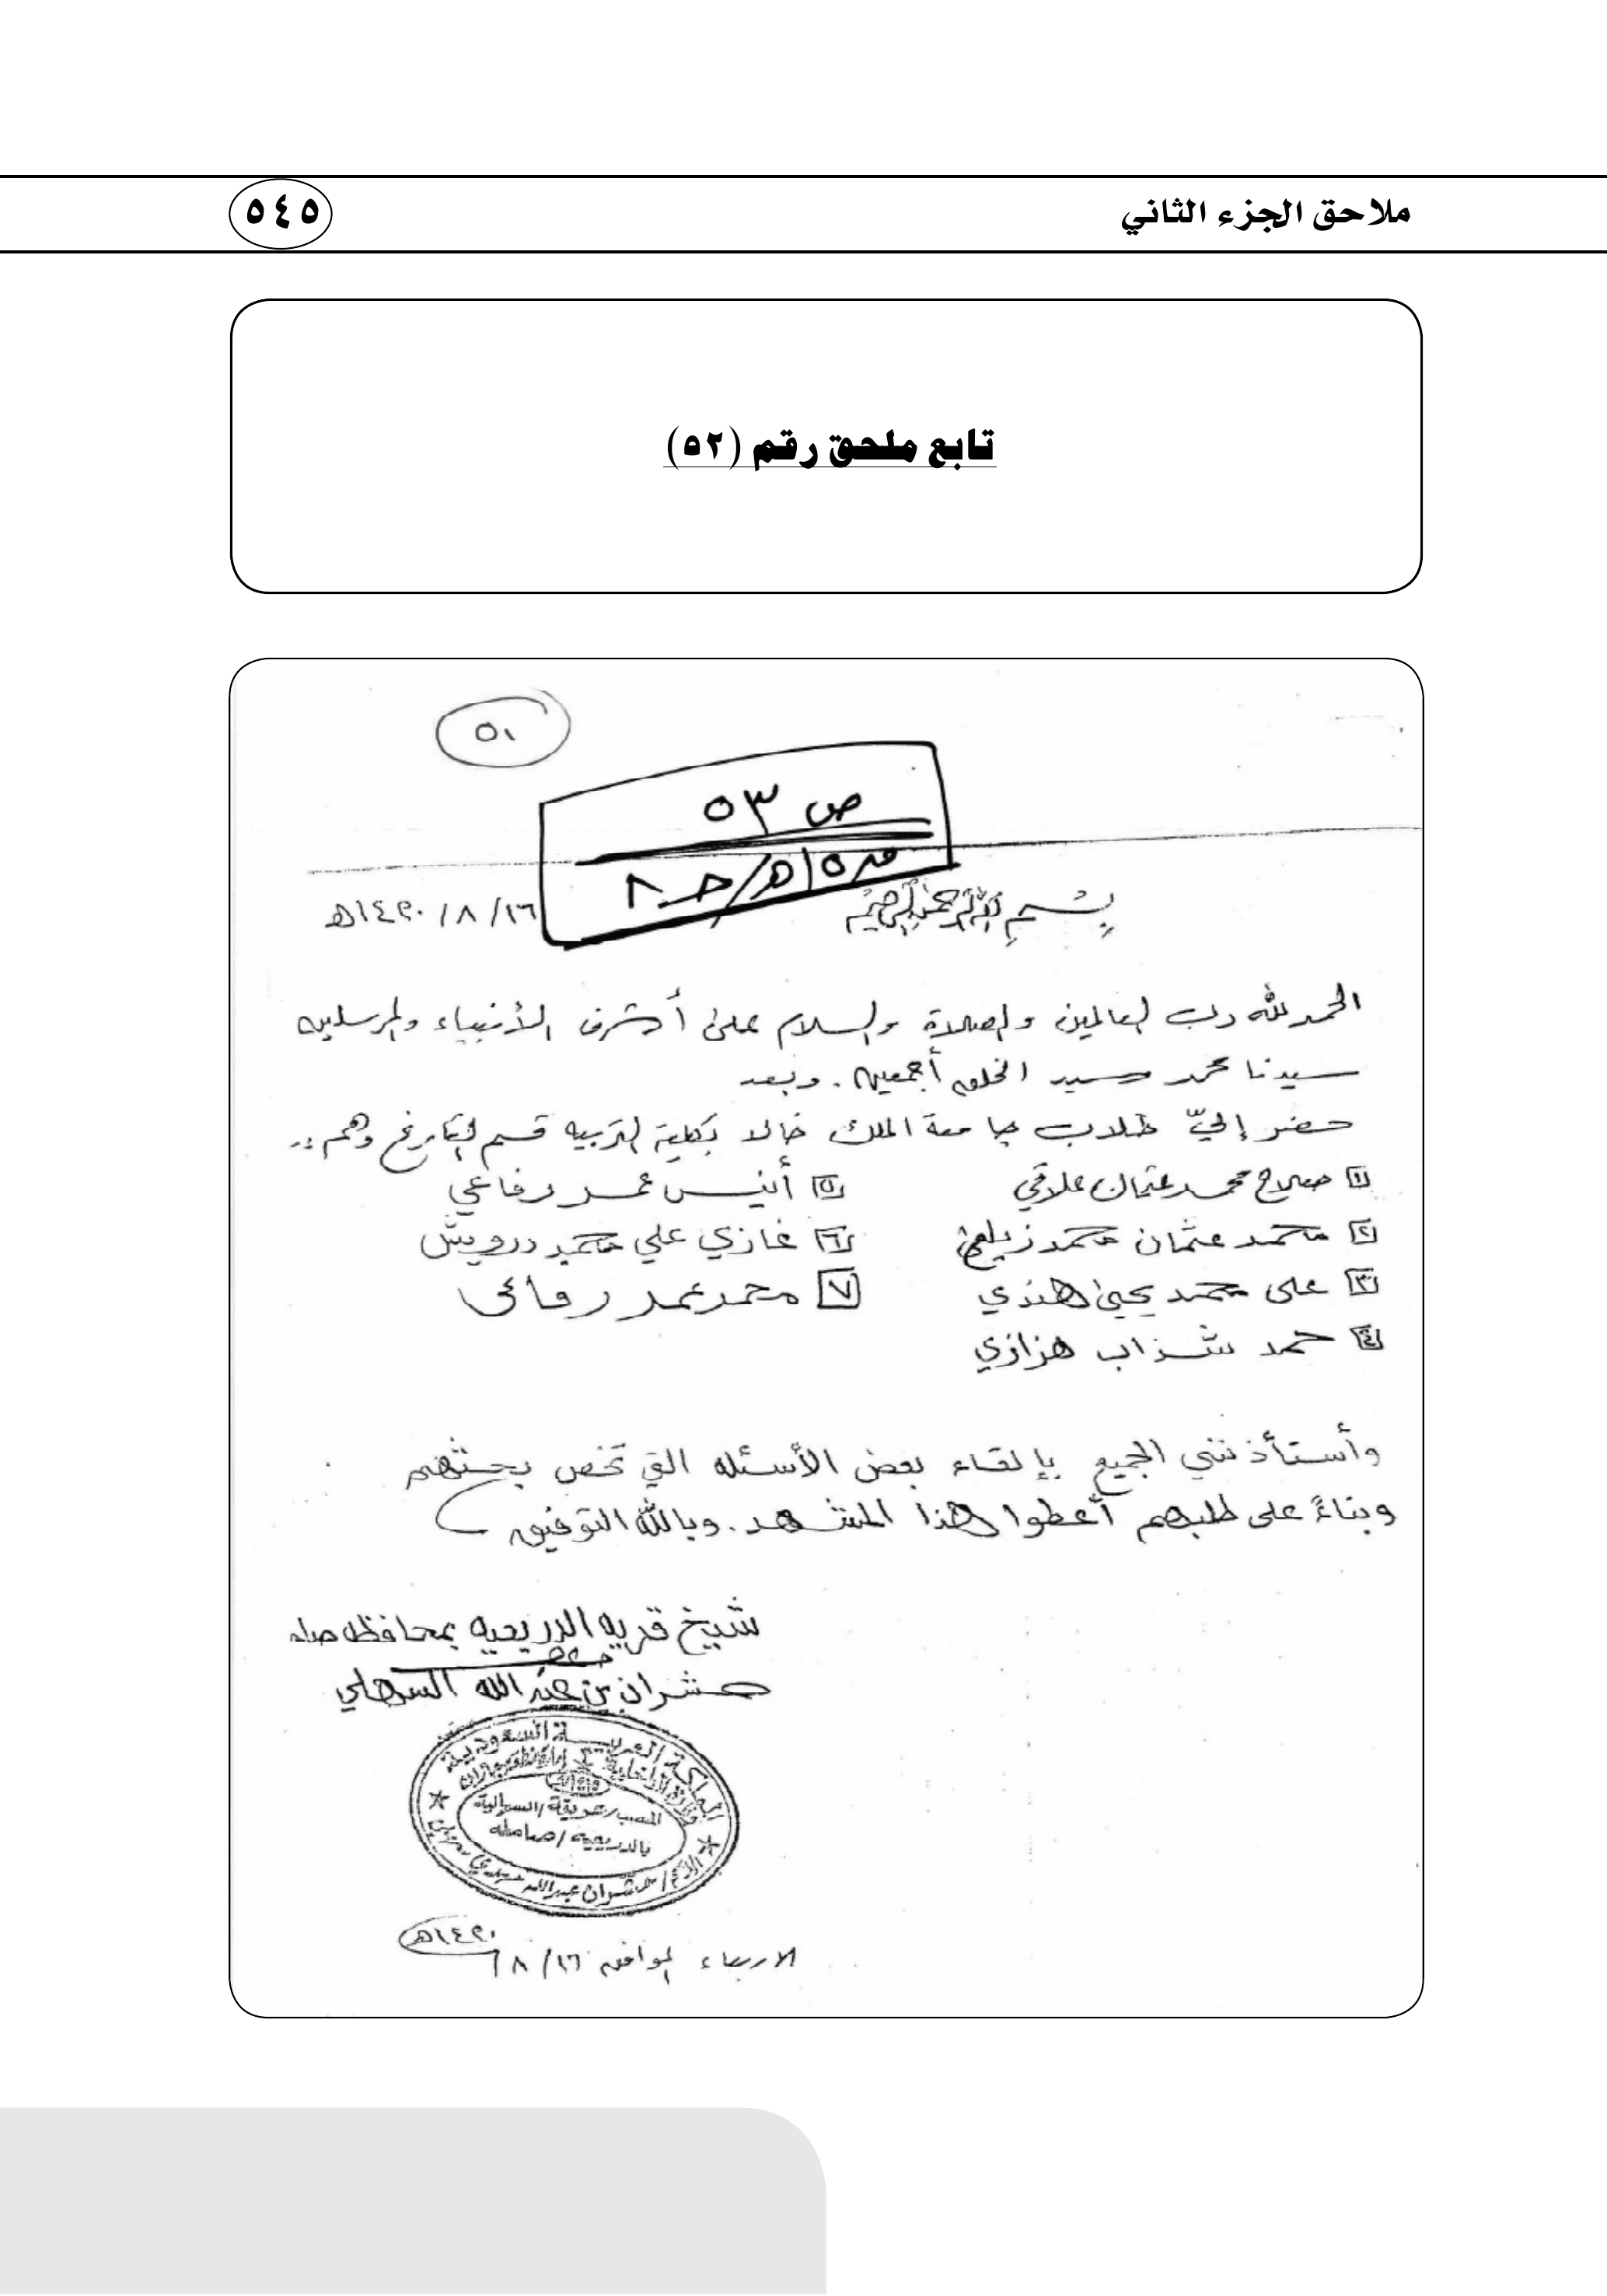 ملاحق الجزء الثاني
٥٤٥
تابع ملحق رقم (٥٢)
٥١
ص ٥٣
بسم الله الرحمن الرحيم
١٦/ ٨/ ١٤٢٠هـ
الحمد لله رب العالمين والصلاة والسلام على أشرف الأنبياء والمرسلين
سيدنا محمد سيد الخلق أجمعين. وبعد
حضر إليّ طلاب جامعة الملك خالد بكلية التربيه قسم التاريخ وهم :.
١ صلاح محمد عثمان علاقي
٢ محمد عثمان محمد زيلعي
٣ على محمد يحيى هندي
٤ حمد شذاب هزازي
٥ أنيس عمر رفاعي
٦ غازي علي محمد درويش
٧ محمد عمر رفاعى
وأستأذنني الجميع بإلقاء بعض الأسئله التي تخص بحثهم
وبناءً على طلبهم أعطوا هذا المشهد. وبالله التوفيق
شيخ قريه الدريعيه بمحافظة صامطه
حشران بن عبد الله السهلي
المملكة العربيـــة السعودية
وزارة الداخلية
بالدريعيه/صامطه
الاربعاء الموافق ١٦/ ٨/ ١٤٢٠هـ